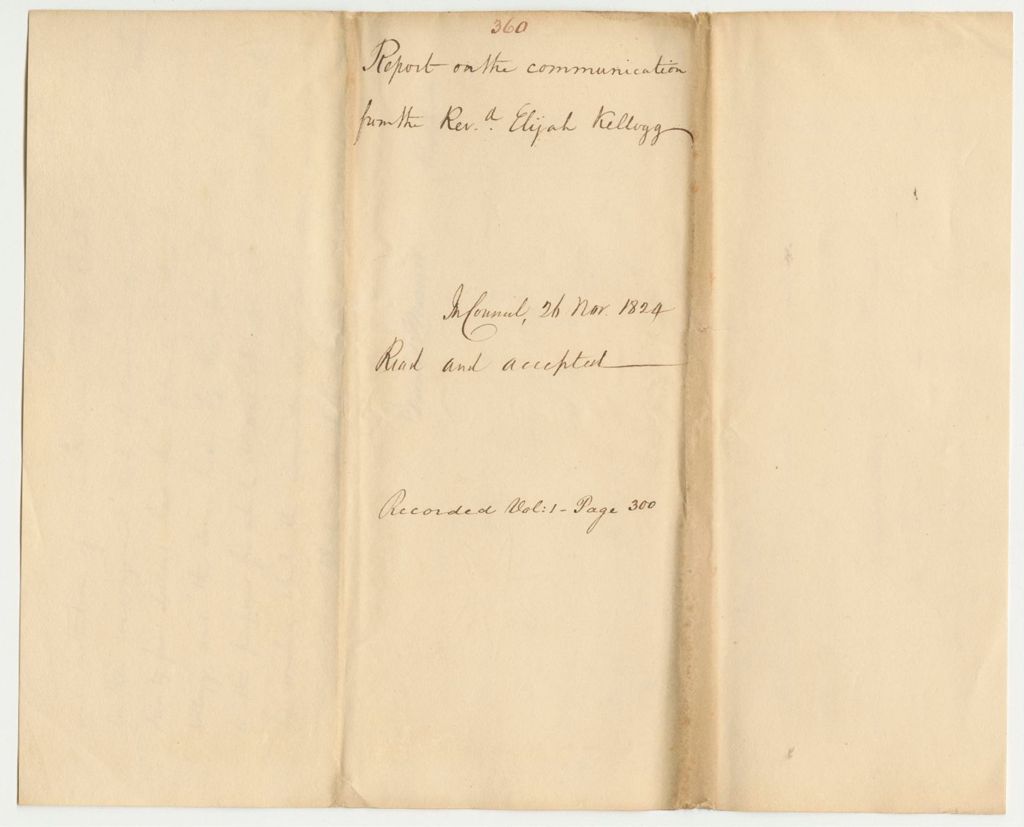 360
Report on the communication
from the Rev.d Elijah Kellogg
In Council, 26 Nov. 1824
Read and accepted
Recorded Vol: 1 - Page 300